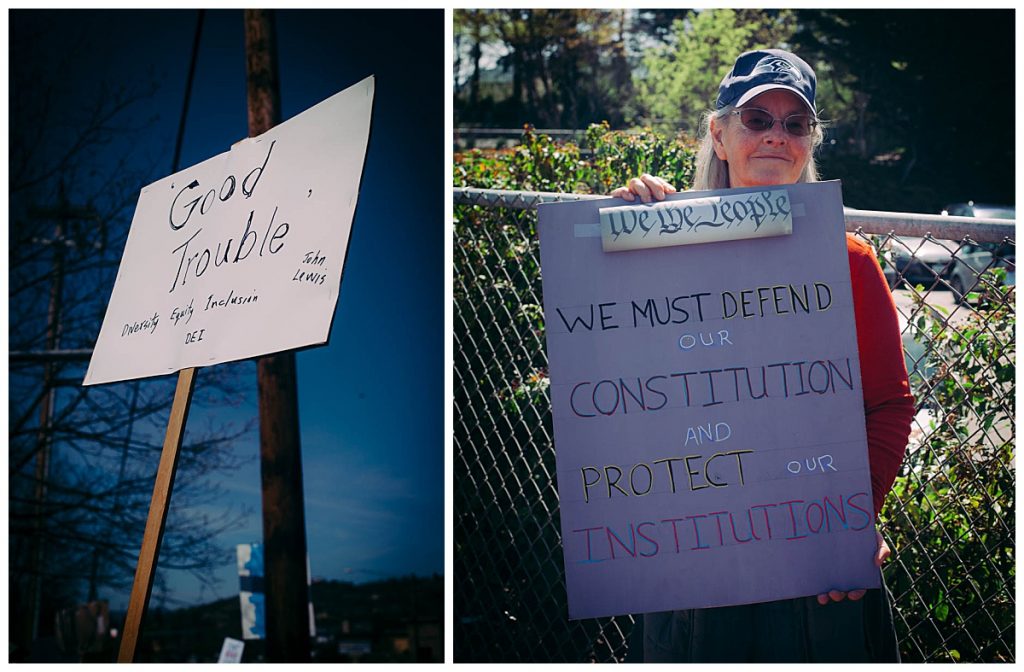 'Good
Trouble'
John
Lewis
Diversity Equity Inclusion
DEI
We the People
WE MUST DEFEND
OUR
CONSTITUTION
AND
PROTECT OUR
INSTITUTIONS